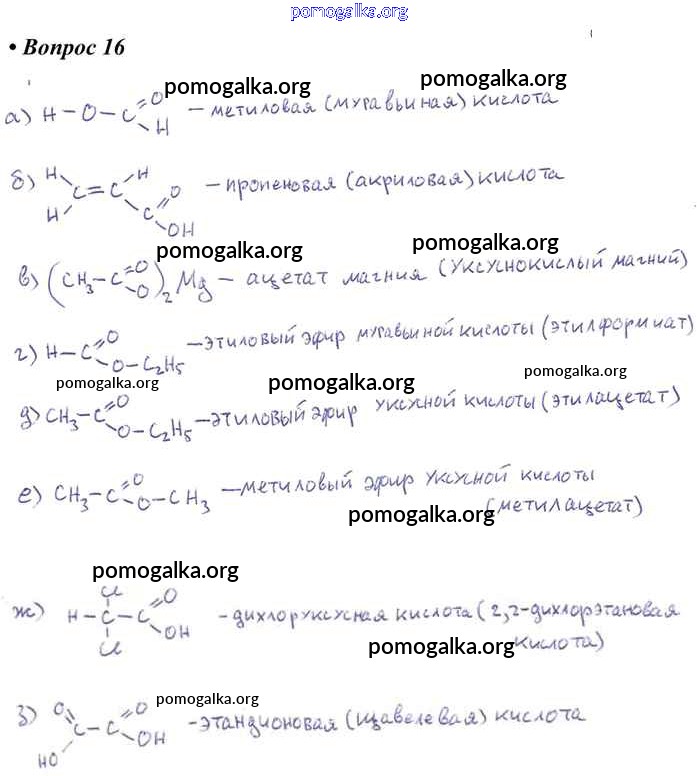 pomogalka.org
• Вопрос 16
pomogalka.org pomogalka.org
а) H-O-C=O H - метиловая (муравьиная) кислота
б) H H C=C H C=O OH - пропеновая (акриловая) кислота
pomogalka.org pomogalka.org
в) (CH3-C=O O)2 Mg - ацетат магния (уксуснокислый магний)
г) H-C=O O-C2H5 - этиловый эфир муравьиной кислоты (этилформиат)
pomogalka.org pomogalka.org pomogalka.org
д) CH3-C=O O-C2H5 - этиловый эфир уксусной кислоты (этилацетат)
е) CH3-C=O O-CH3 - метиловый эфир уксусной кислоты
(метилацетат)
pomogalka.org
pomogalka.org
ж) H-C-C=O OH Cl Cl - дихлоруксусная кислота (2,2-дихлорэтановая
кислота)
pomogalka.org
pomogalka.org
з) O=C-C=O HO OH - этандионовая (щавелевая) кислота